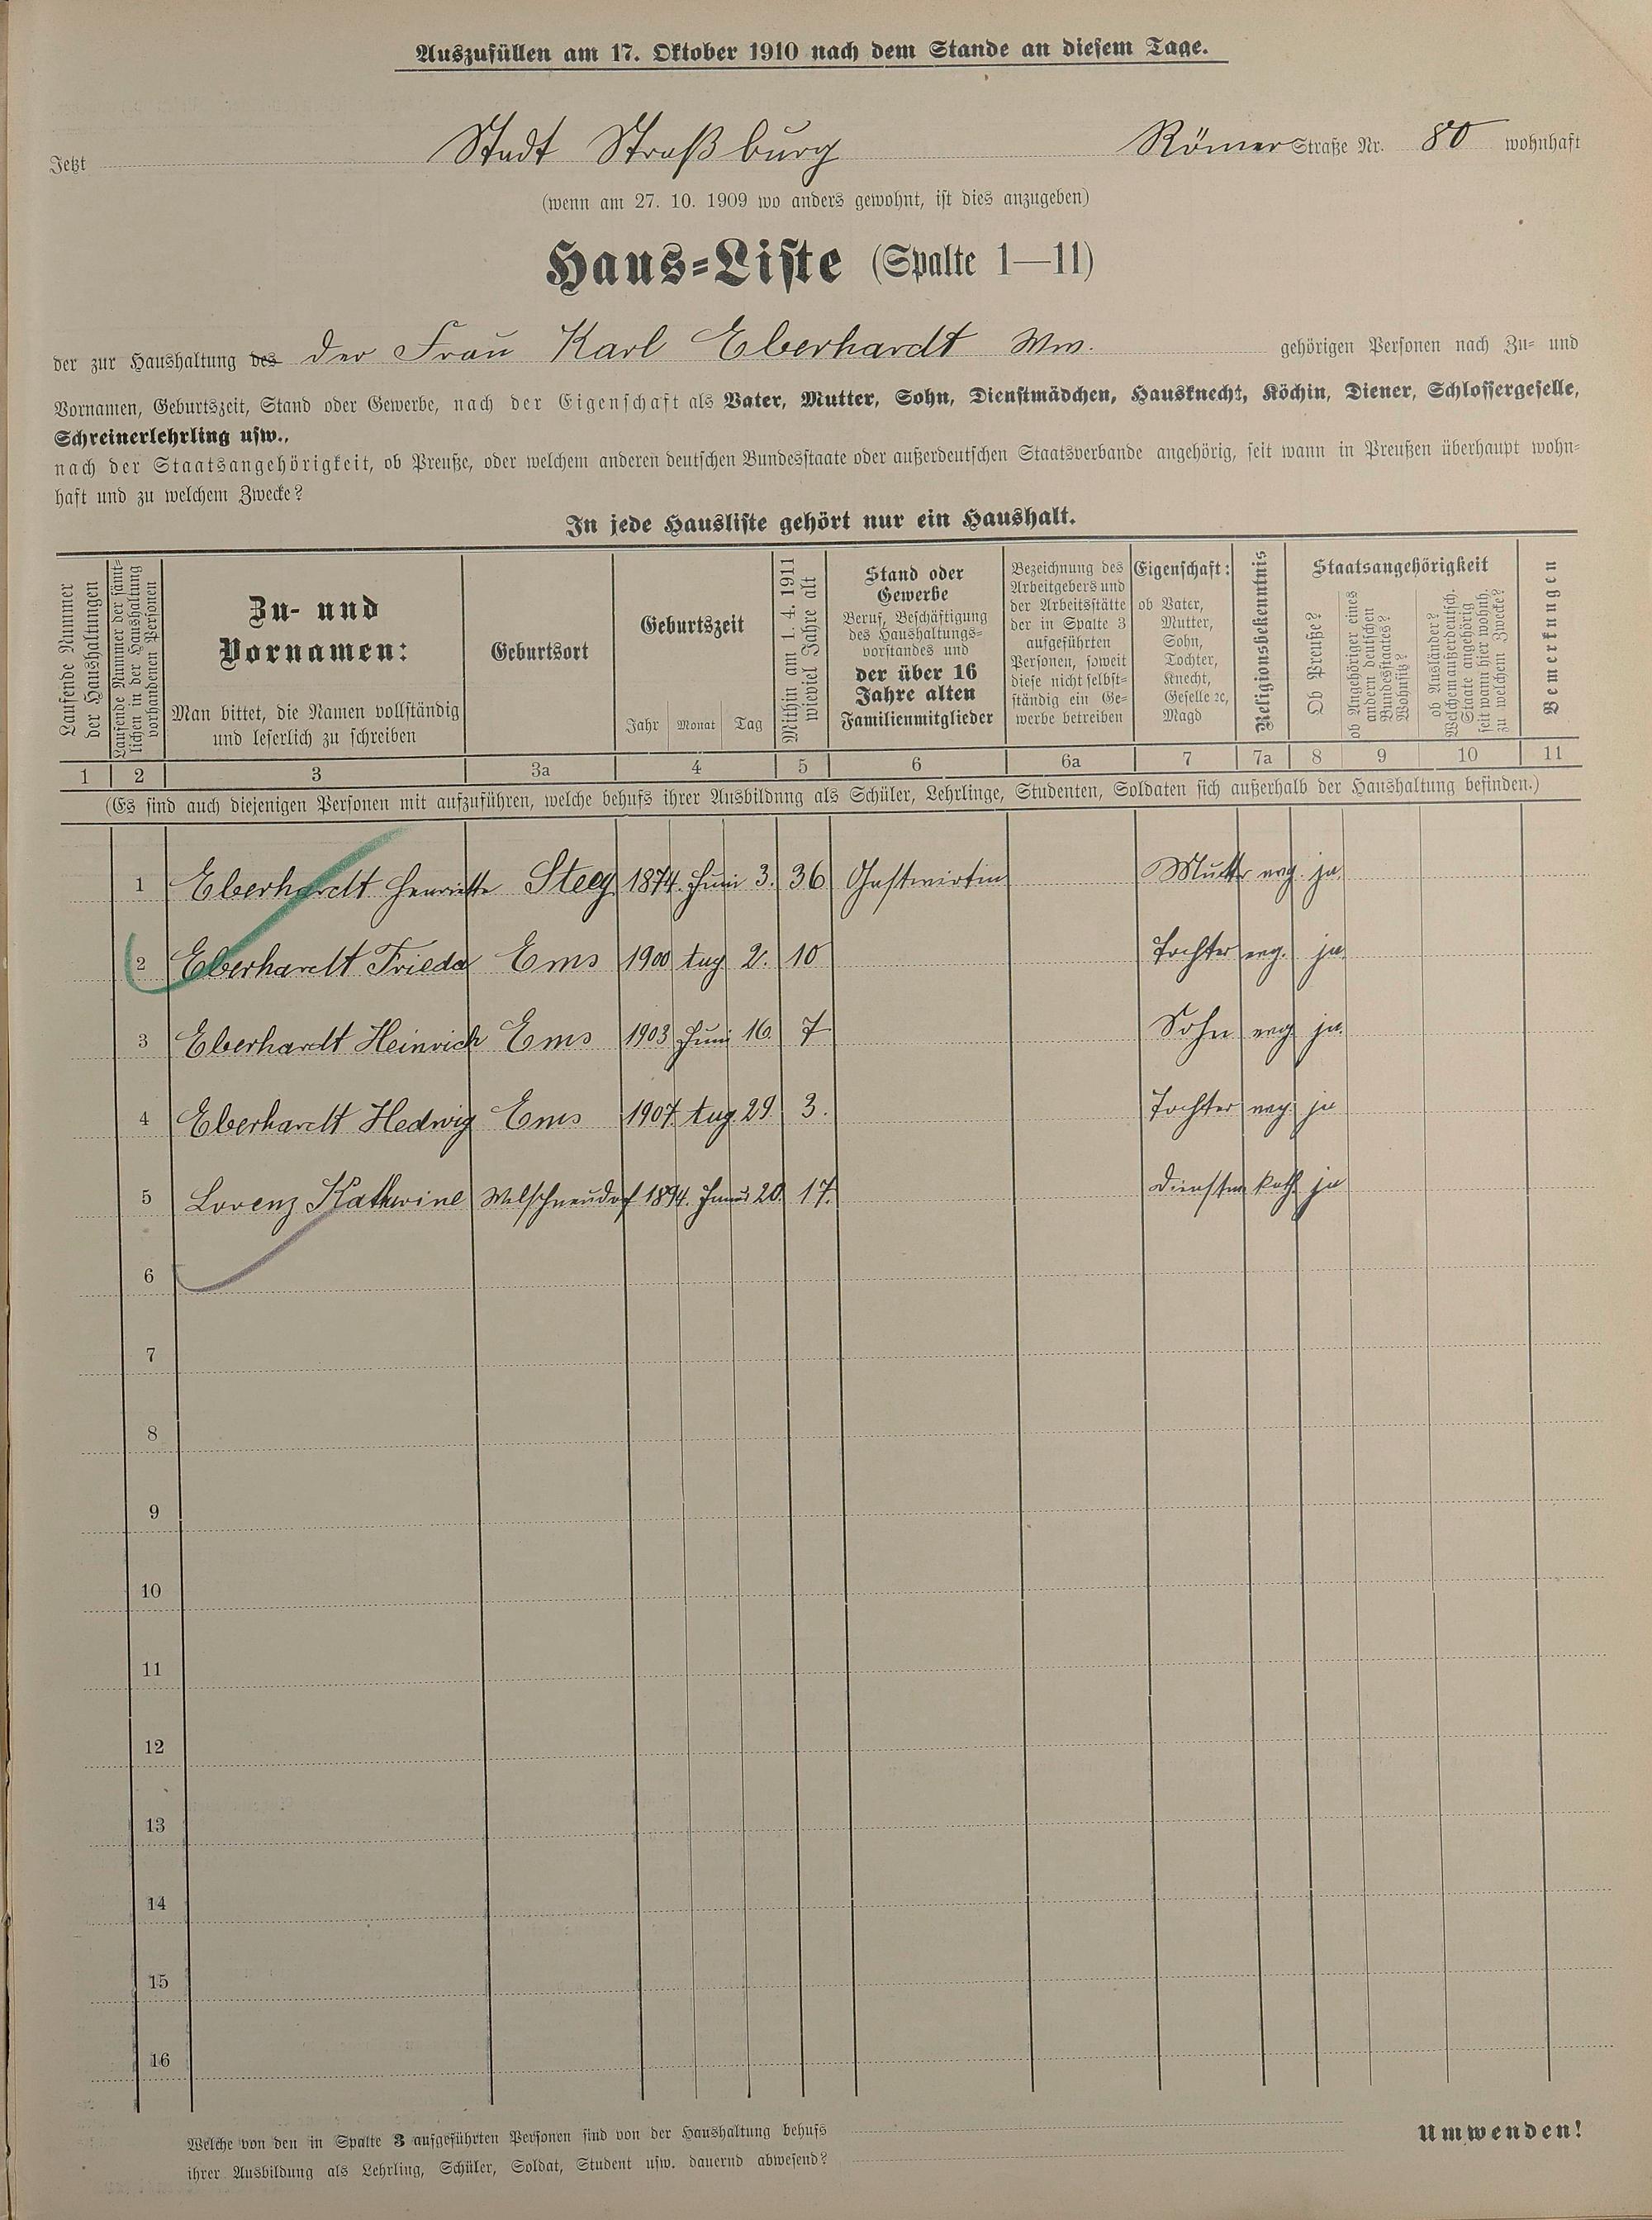 Auszufüllen am 17. Oktober 1910 nach dem Stande an diesem Tage.
Jetzt Stadt Straßburg Römer Straße Nr. 80 wohnhaft
(wenn am 27. 10. 1909 wo anders gewohnt, ist dies anzugeben)
Haus-Liste (Spalte 1—11)
der zur Haushaltung des der Frau Karl Eberhardt Ww. gehörigen Personen nach Zu- und
Vornamen, Geburtszeit, Stand oder Gewerbe, nach der Eigenschaft als Vater, Mutter, Sohn, Dienstmädchen, Hausknecht, Köchin, Diener, Schlossergeselle,
Schreinerlehrling usw.,
nach der Staatsangehörigkeit, ob Preuße, oder welchem anderen deutschen Bundesstaate oder außerdeutschen Staatsverbande angehörig, seit wann in Preußen überhaupt wohn-
haft und zu welchem Zwecke?
In jede Hausliste gehört nur ein Haushalt.
Laufende Nummer
der Haushaltungen
Laufende Nummer der sämt-
lichen in der Haushaltung
vorhandenen Personen
Zu- und
Vornamen:
Man bittet, die Namen vollständig
und leserlich zu schreiben
Geburtsort
Geburtszeit
Jahr Monat Tag
Mithin am 1. 4. 1911
wieviel Jahre alt
Stand oder
Gewerbe
Beruf, Beschäftigung
des Haushaltungs-
vorstandes und
der über 16
Jahre alten
Familienmitglieder
Bezeichnung des
Arbeitgebers und
der Arbeitsstätte
der in Spalte 3
aufgeführten
Personen, soweit
diese nicht selbst-
ständig ein Ge-
werbe betreiben
Eigenschaft:
ob Vater,
Mutter,
Sohn,
Tochter,
Knecht,
Geselle ꝛc,
Magd
Religionsbekenntnis
Staatsangehörigkeit
Ob Preuße?
ob Angehöriger eines
andern deutschen
Bundesstaates?
Wohnsitz?
ob Ausländer?
Welchem außerdeutsch.
Staate angehörig
seit wann hier wohnh.
zu welchem Zwecke?
Bemerkungen
1 2 3 3a 4 5 6 6a 7 7a 8 9 10 11
(Es sind auch diejenigen Personen mit aufzuführen, welche behufs ihrer Ausbildung als Schüler, Lehrlinge, Studenten, Soldaten sich außerhalb der Haushaltung befinden.)
1 Eberhardt Henriette Steeg 1874. Juni 3. 36 Gastwirtin Mutter evg. ja.
2 Eberhardt Frieda Ems 1900 Aug 2. 10 Tochter evg. ja
3 Eberhardt Heinrich Ems 1903 Juni 16. 7 Sohn evg ja.
4 Eberhardt Hedwig Ems 1907. Aug. 29. 3. Tochter evg. ja
5 Lorenz Kathrine Welschneudorf 1894. 20. 17. Dienstm kath. ja
6
7
8
9
10
11
12
13
14
15
16
Welche von den in Spalte 3 aufgeführten Personen sind von der Haushaltung behufs
ihrer Ausbildung als Lehrling, Schüler, Soldat, Student usw. dauernd abwesend?
Umwenden!